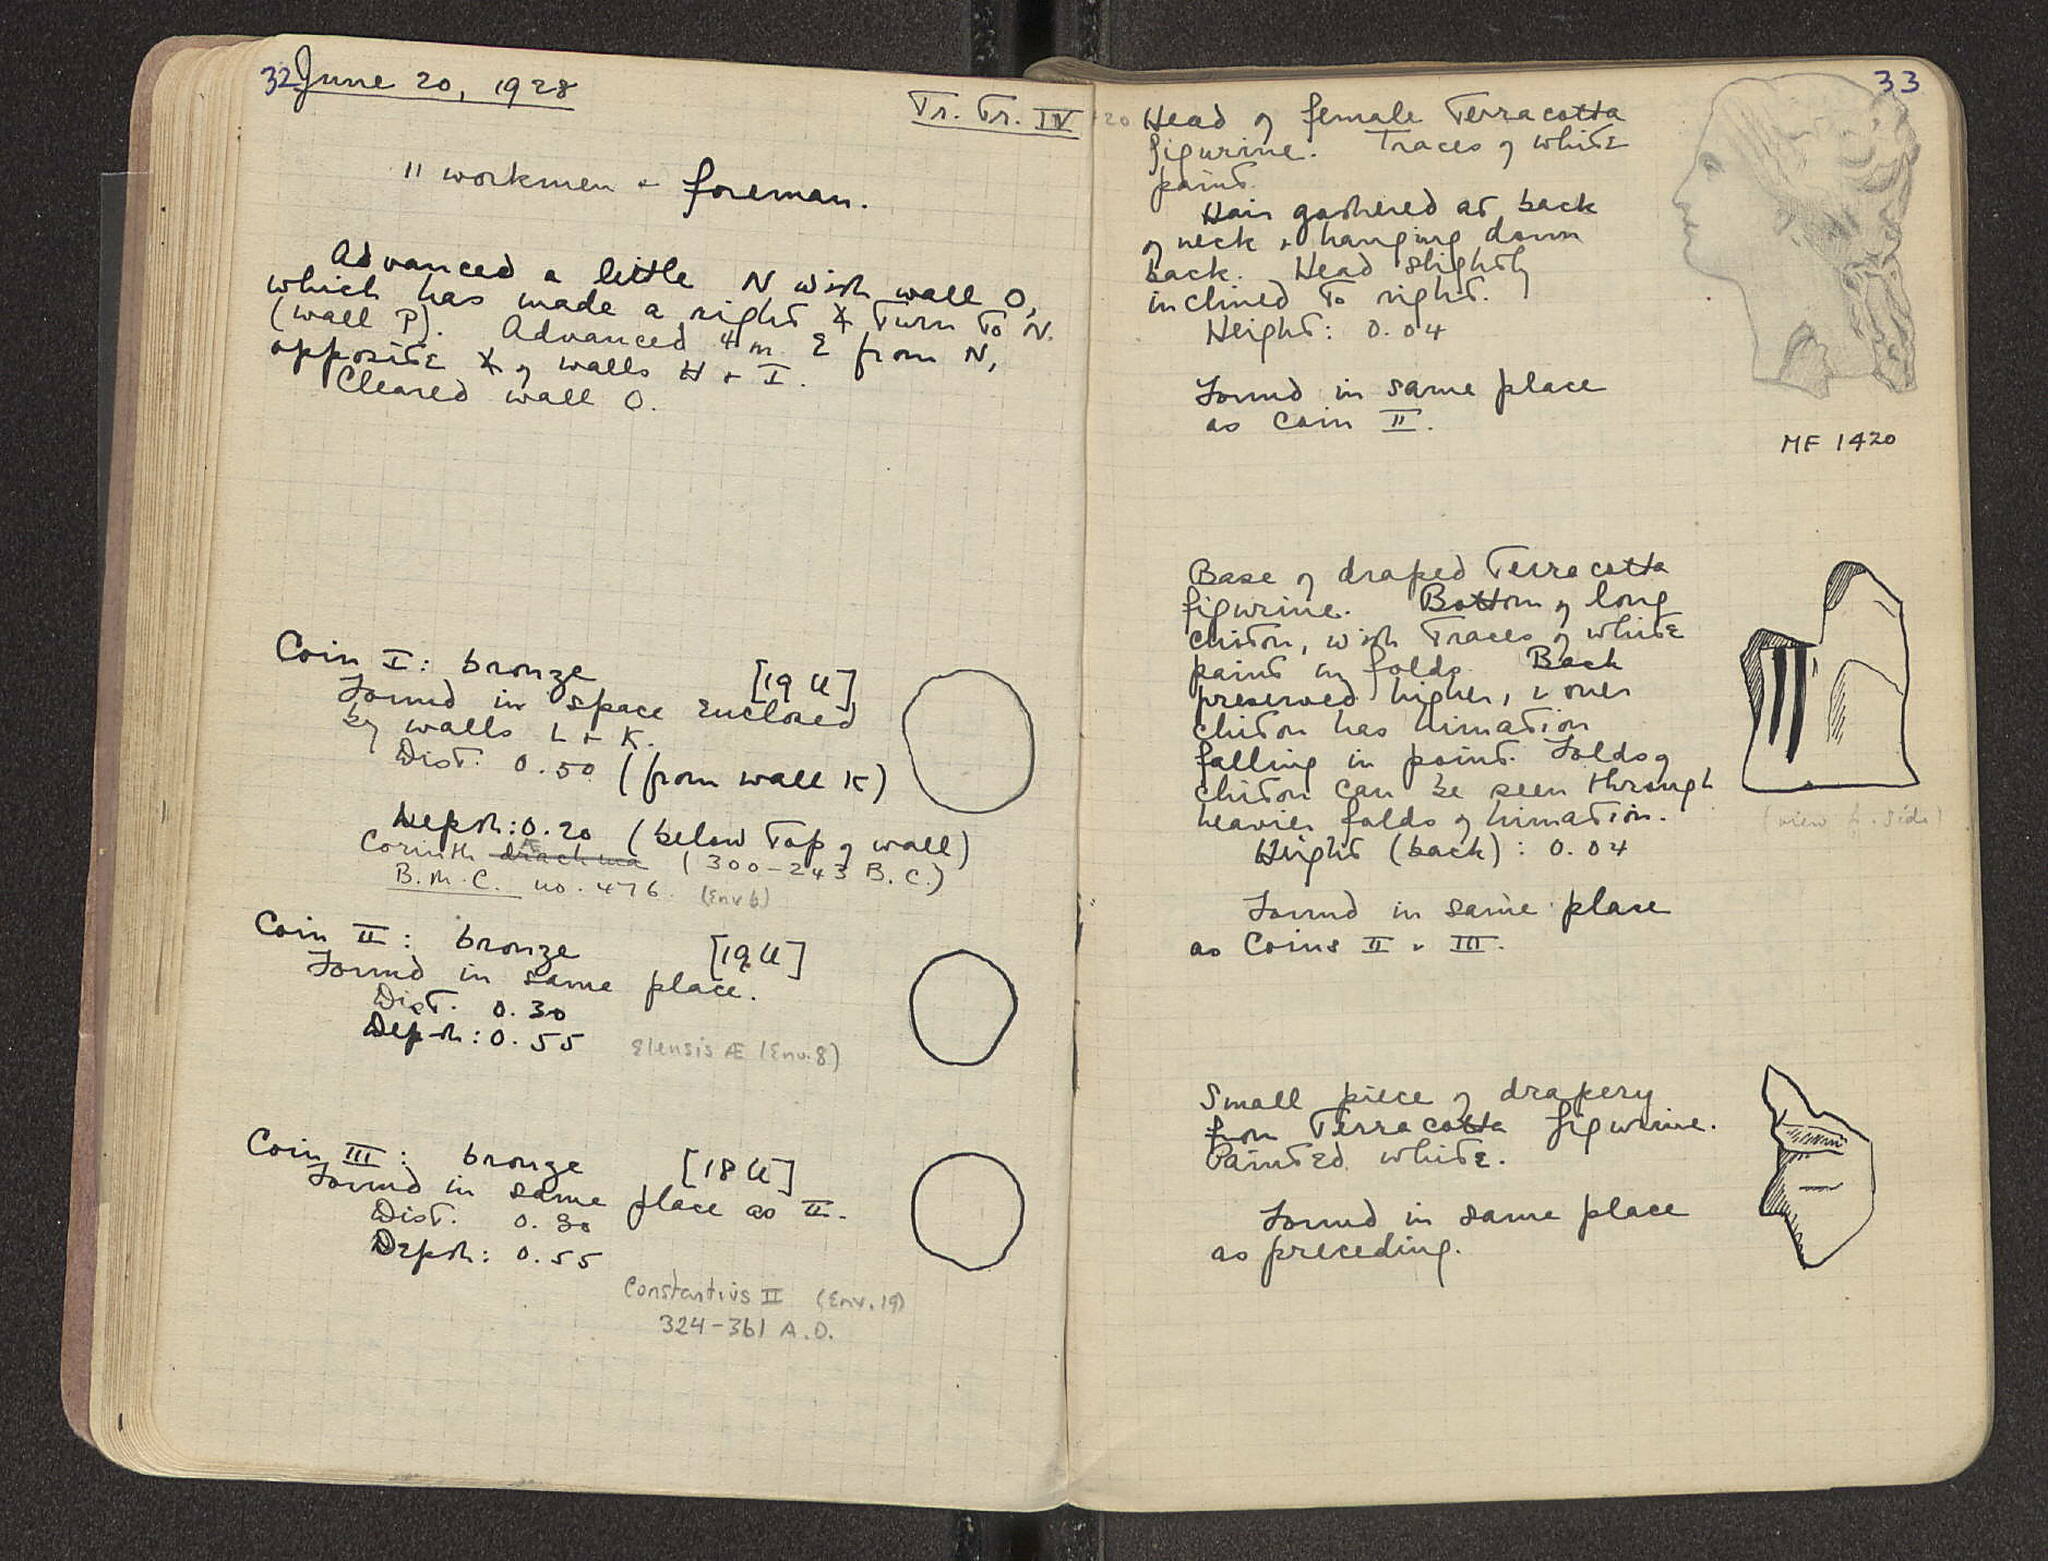 32 June 20, 1928
Tr. Tr. IV
11 workmen + foreman.
Advanced a little N with wall O,
which has made a right ∡ turn to N.
(wall P). Advanced 4 m E from N,
opposite ∡ of walls H + I.
Cleared wall O.
Coin I: bronze [19 U]
Found in space enclosed
by walls L + K.
Dist: 0.50 (from wall K)
Depth: 0.20 (below top of wall)
Corinth drachma Æ (300-243 B.C.)
B.M.C. no. 476. (Env 6)
Coin II: bronze [19 U]
Found in same place.
Dist. 0.30
Depth: 0.55 Elensis Æ (Env. 8)
Coin III: bronze [18 U]
Found in same place as II.
Dist. 0.30
Depth: 0.55
Constantius II (Env. 19)
324-361 A.D.
33
Head of female terracotta
figurine. Traces of white
paint.
Hair gathered at back
of neck + hanging down
back. Head slightly
inclined to right.
Height: 0.04
Found in same place
as Coin II.
MF 1420
Base of draped terracotta
figurine. Bottom of long
chiton, with traces of white
paint in folds. Back
preserved higher, + over
chiton has himation
falling in point. Folds of
chiton can be seen through
heavier folds of himation.
Height (back): 0.04
(view fr. side)
Found in same place
as Coins II + III.
Small piece of drapery
from terracotta figurine.
Painted white.
Found in same place
as preceding.